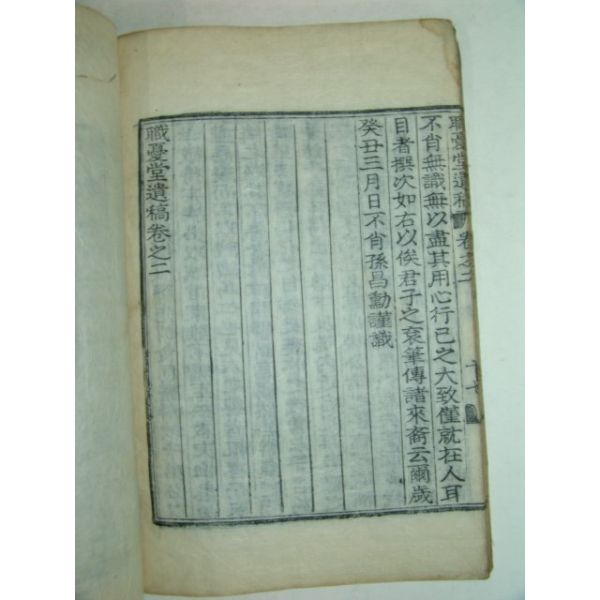 職憂堂遺稿 卷之二
十七
不肖無識無以盡其用心行已之大致僅就在人耳
目者撰次如右以俟君子之袞筆傳諸來裔云爾歲
癸丑三月日不肖孫昌勳謹識
職憂堂遺稿卷之二